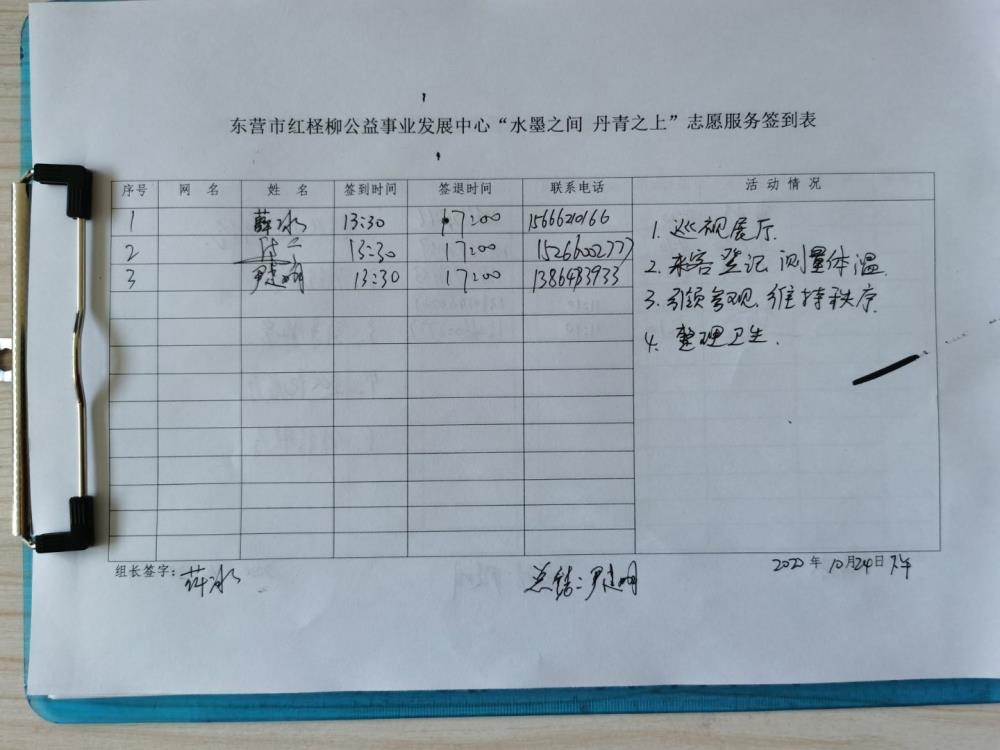 东营市红柽柳公益事业发展中心“水墨之间 丹青之上”志愿服务签到表
序号 网 名 姓 名 签到时间 签退时间 联系电话 活 动 情 况
1 薛冰 13:30 17:00 15666210166
2 13:30 17:00 15266002777
3 尹建明 13:30 17:00 13864783933
1. 巡视展厅.
2. 来客登记、测量体温.
3. 引领参观、维持秩序.
4. 整理卫生.
组长签字: 薛冰 总结: 尹建明 2020年10月24日下午